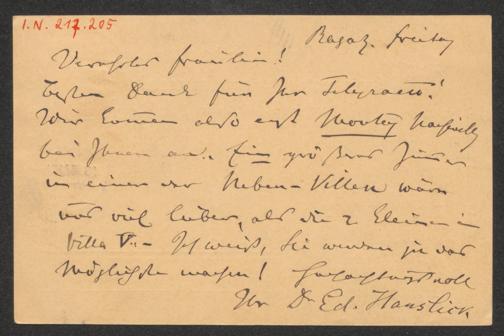 I.N. 217.205
Ragaz. Freitag
Verehrtes Fräulein!
Besten Dank für Ihr Telegramm!
Wir kommen also erst Montag Nachmittag
bei Ihnen an. Ein größeres Zimmer
in einer der Neben-Villen wäre
uns viel lieber, als die 2 kleinen in
Villa V. - Ich weiß, Sie werden ja das
Möglichste machen! Hochachtungsvoll
Ihr Dr Ed. Hanslick